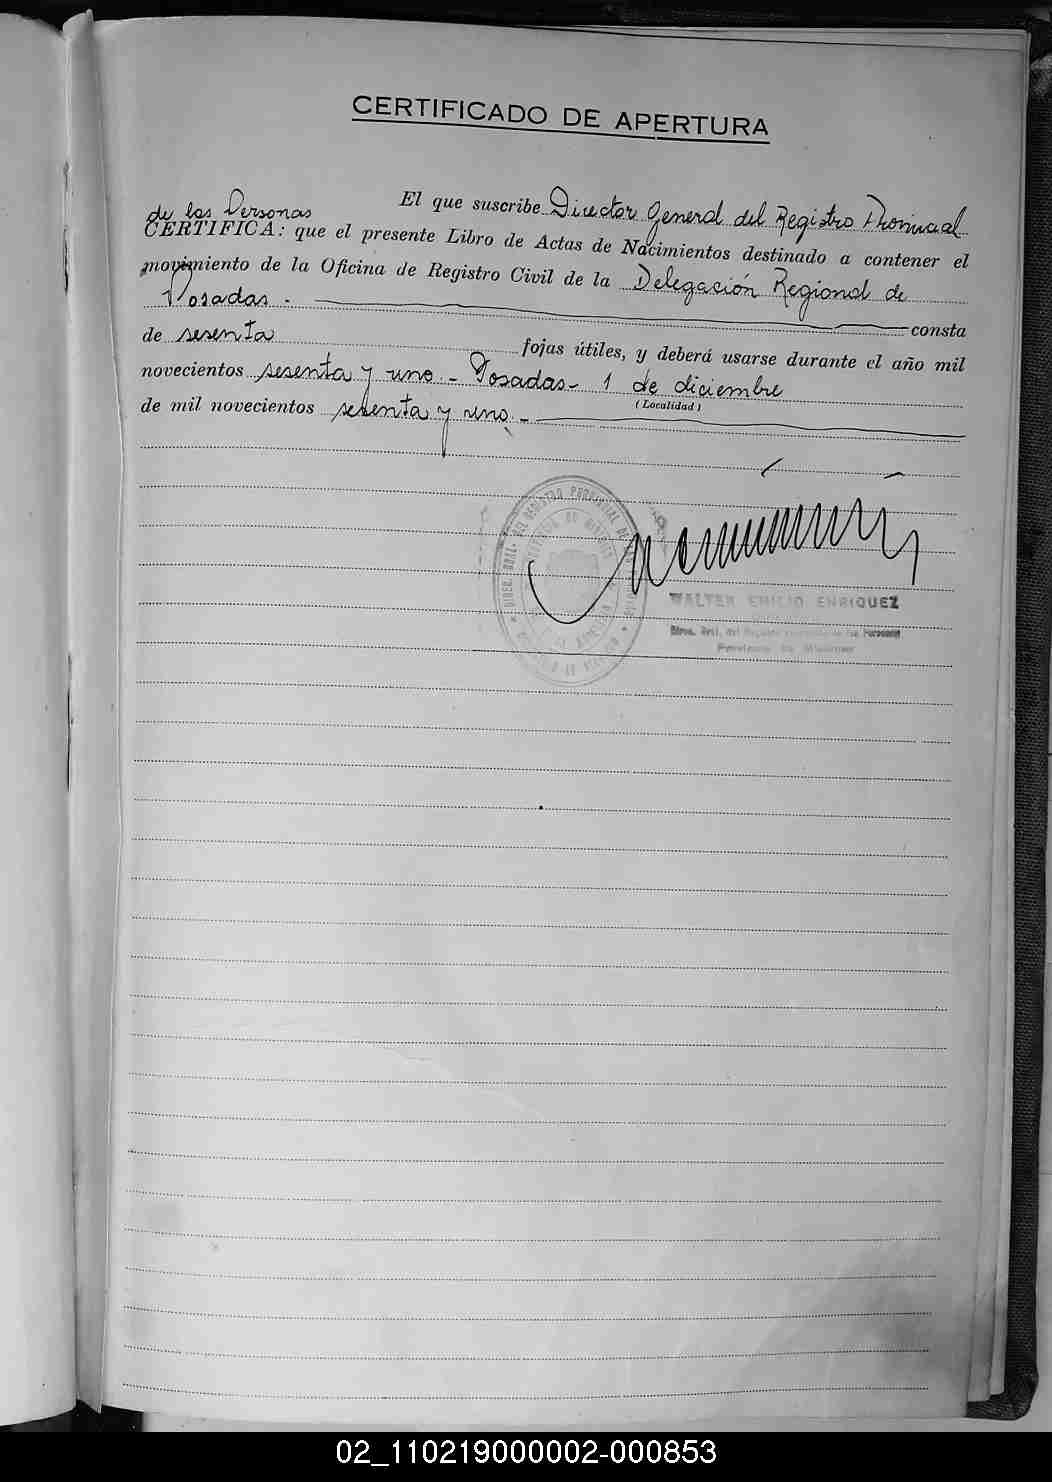 CERTIFICADO DE APERTURA
El que suscribe Director General del Registro Provincial
de las Personas
CERTIFICA: que el presente Libro de Actas de Nacimientos destinado a contener el
movimiento de la Oficina de Registro Civil de la Delegación Regional de
Posadas.- consta
de sesenta fojas útiles, y deberá usarse durante el año mil
novecientos sesenta y uno.- Posadas- 1 de diciembre
(Localidad)
de mil novecientos sesenta y uno.-
WALTER EMILIO ENRIQUEZ
Direc. Gral. del Registro de las Personas
Provincia de Misiones
02_110219000002-000853